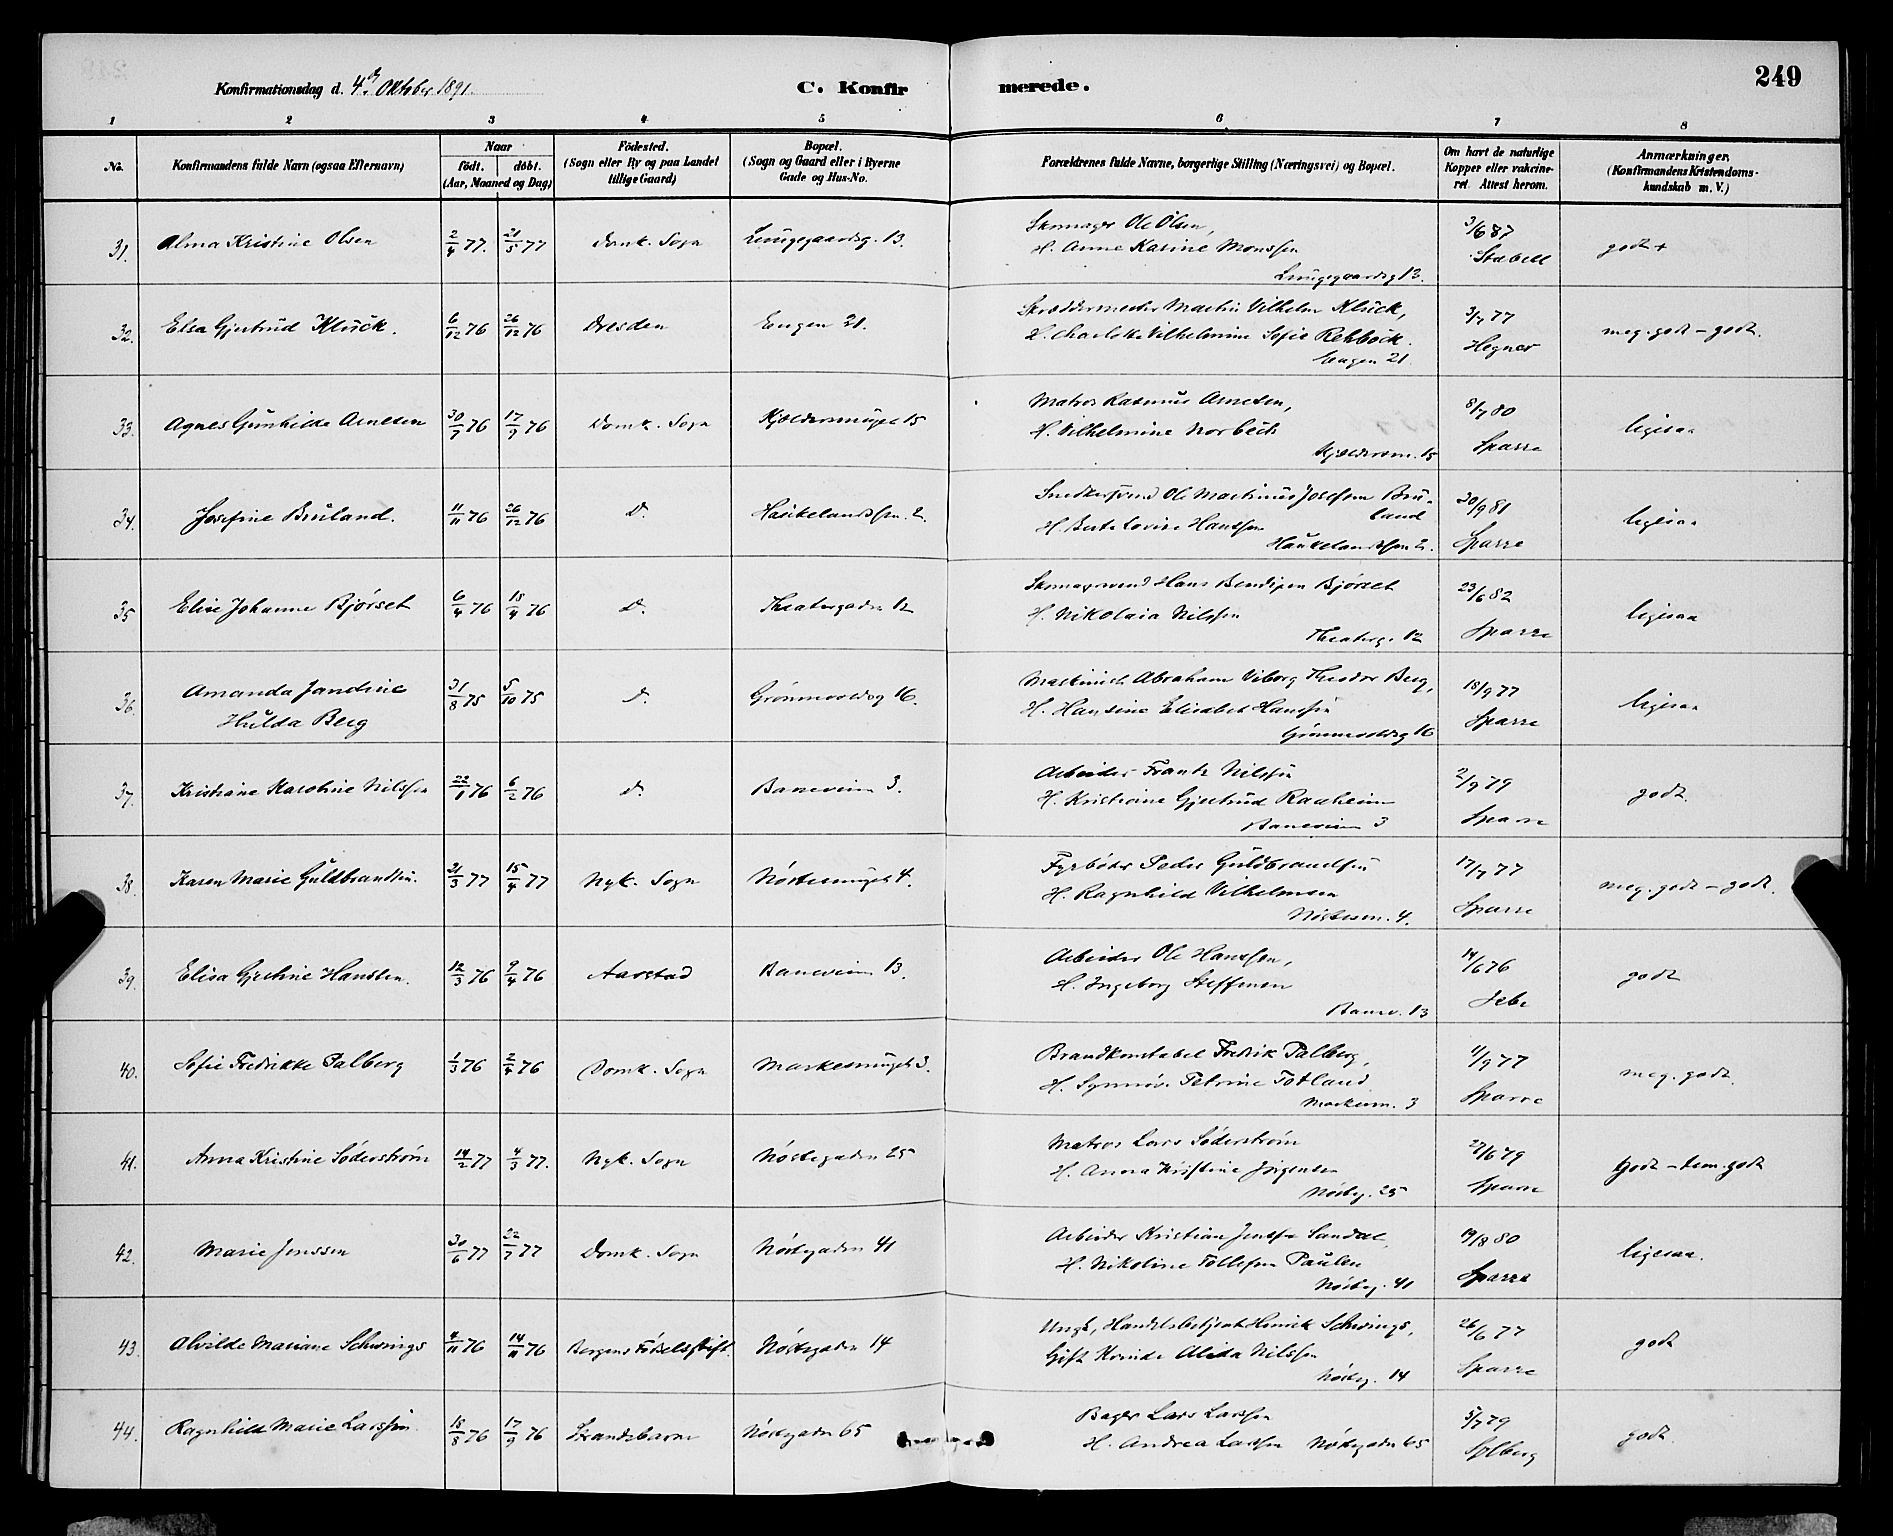 249
Konfirmationsdag d. 4de Oktober 1891.
C. Konfirmerede.
1 2 3 4 5 6 7 8
No.
Konfirmandens fulde Navn (ogsaa Efternavn)
Naar
født. døbt.
(Aar, Maaned og Dag)
Fødested.
(Sogn eller By og paa Landet
tillige Gaard)
Bopæl.
(Sogn og Gaard eller i Byerne
Gade og Hus-No.
Forældrenes fulde Navne, borgerlige Stilling (Næringsvei) og Bopæl.
Om havt de naturlige
Kopper eller vakcine-
ret. Attest herom.
Anmærkninger.
(Konfirmandens Kristendoms-
kundskab m. V.)
31. Alma Kristine Olsen 2/4 77. 21/5 77 Domk. Sogn Lungegaardsg. 13. Skomager Ole Olsen, 3/6 87
H. Anne Karine Monssen Stabell godt +
Lungegaardsg 13.
32. Elsa Gjertrud Klück. 6/12 76 26/12 76 Dresden Engen 21. Skræddermester Martin Vilhelm Klück, 3/7 77
H. Charlotte Vilhelmine Sofie Rehbock. Hegner meg. godt – godt.
Engen 21.
33. Agnes Gunhilda Arnesen 30/7 76 17/9 76 Domk. Sogn Kjeldersmuget 15 Matros Rasmus Arnesen, 8/7 80
H. Vilhelmine Norbech Sparre ligesaa
Kjeldersm. 15
34. Josefine Bruland. 11/11 76 26/12 76 D. Haukelandssm. 2. Snedkersvend Ole Martinus Josefsen Bru- 30/9 81
land
H. Berte Lovise Hanssen Sparre ligesaa
Haukelandssm 2.
35 Elise Johanne Bjørset 6/4 76 15/4 76 D. Theatergaden 12 Skomagersvend Hans Bendixen Bjørset 23/6 82
H. Nikolaia Nilssen Sparre ligesaa
Theaterg. 12
36. Amanda Jandine
Hulda Berg 31/8 75 5/10 75 D. Grønnevoldsg 16. Maskinist Abraham Viborg Theodor Berg, 18/9 77
H. Hansine Elisabet Hanssen Sparre ligesaa
Grønnevoldsg 16
37. Kristiane Karoline Nilssen 22/1 76 6/2 76 D. Baneveien 3. Arbeider Frantz Nilssen 2/9 79
H. Kristiane Gjertrud Raaheim Sparre godt.
Baneveien 3
38. Karen Marie Guldbrandsen. 21/3 77 15/4 77 Nyk. Sogn Nøstemuget 4. Fyrbøder Peder Guldbrandsen 17/7 77
H. Ragnhild Vilhelmsen Sparre meg. godt – godt.
Nøstem. 4.
39. Elisa Gjertine Hanssen. 12/3 76 9/4 76 Aarstad Baneveien 13. Arbeider Ole Hanssen, 14/6 76
H. Ingeborg Steffensen godt
Banev. 13
40. Sofie Fredrikke Palberg 1/3 76 2/4 76 Domk. Sogn Markesmuget 3. Brandkonstabel Fredrik Palberg, 11/9 77
H. Synnøv Petrine Totland Sparre meg. godt.
Markesm. 3
41. Anna Kristine Søderstrøm 14/2 77 4/3 77. Nyk. Sogn Nøstegaden 25 Matros Lars Søderstrøm 27/6 79
H. Anna Kristine Jørgensen Sparre godt – tem. godt
Nøsteg. 25
42. Marie Jenssen 30/6 77 22/7 77 Domk. Sogn Nøstegaden 41 Arbeider Kristian Jenssen Sandal, 19/8 80
H. Nikoline Tollefsen Paulen Sparre ligesaa.
Nøsteg. 41
43. Alvilde Mariane Schwings 4/11 76 14/11 76 Bergens Fødselsstift. Nøstegaden 14 Ungk, Handelsbetjent Henrik Schwings, 26/6 77
Gift Kvinde Alida Nilssen Sparre godt
Nøsteg. 14
44. Ragnhild Marie Larssen 18/8 76 17/9 76 Strandebarm Nøstegaden 65 Bager Lars Larssen 5/7 79
H. Andrea Larssen Nøstegaden 65 Solberg godt.